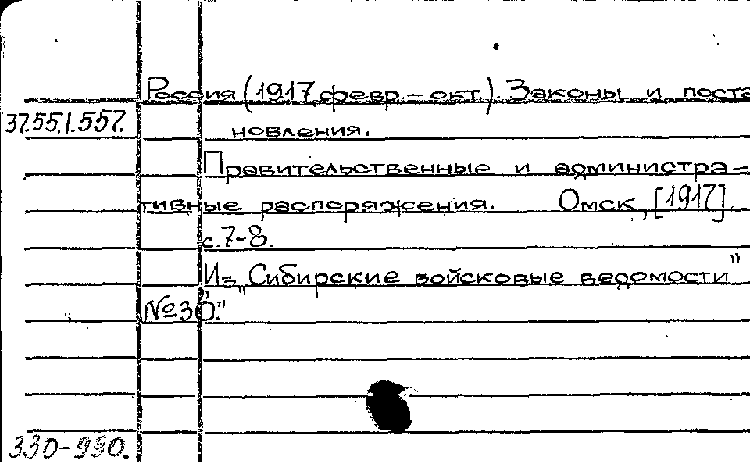 Россия (1917, февр.–окт.) Законы и поста
37.55.1.557.
новления.
Правительственные и администра–
тивные распоряжения. Омск, [1917].
с.7–8.
Из „Сибирские войсковые ведомости"
№30."
330–990.